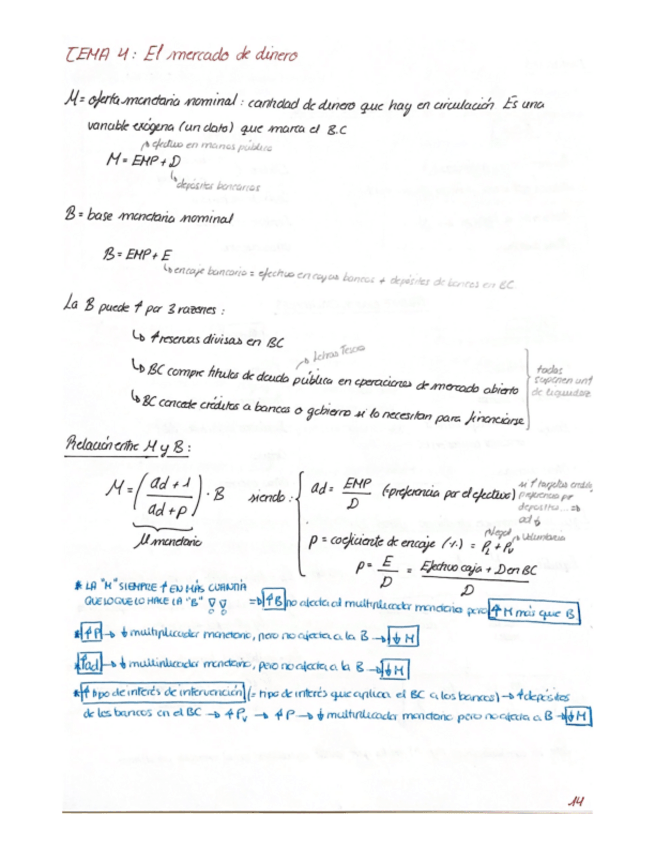 TEMA 4: El mercado de dinero
M = oferta monetaria nominal: cantidad de dinero que hay en circulación Es una
variable exógena (un dato) que marca el B.C
efectivo en manos público
M = EMP + D
depósitos bancarios
B = base monetaria nominal
B = EMP + E
encaje bancario = efectivo en cajas bancos + depósitos de bancos en BC
La B puede ↑ por 3 razones:
↳ ↑ reservas divisas en BC
Letras Tesoro
↳ BC compre títulos de deuda pública en operaciones de mercado abierto
↳ BC concede créditos a bancos o gobierno si lo necesitan para financiarse
todas
suponen un ↑
de liquidez
Relación entre M y B:
M = ( ad + 1 / ad + p ) · B siendo:
M monetario
ad = EMP / D (= preferencia por el efectivo)
si ↑ tarjetas
preferencia por
depositos... ⇒
ad ↓
p = coeficiente de encaje (%) = PL + PV
legal
Voluntario
p = E / D = Efectivo caja + D en BC / D
* LA "M" SIEMPRE ↑ EN MÁS CUANTÍA
QUE LO QUE LO HACE LA "B" !! ⇒ ↑B no afecta al multiplicador monetario pero ↑ M más que B
* ↑P → ↓ multiplicador monetario, pero no afecta a la B → ↓ M
* ↑ad → ↓ multiplicador monetario, pero no afecta a la B → ↓ M
* ↑ tipo de interés de intervención (= tipo de interés que aplica el BC a los bancos) → ↑ depósitos
de los bancos en el BC → ↑ PV → ↑ P → ↓ multiplicador monetario pero no afecta a B → ↓ M
14